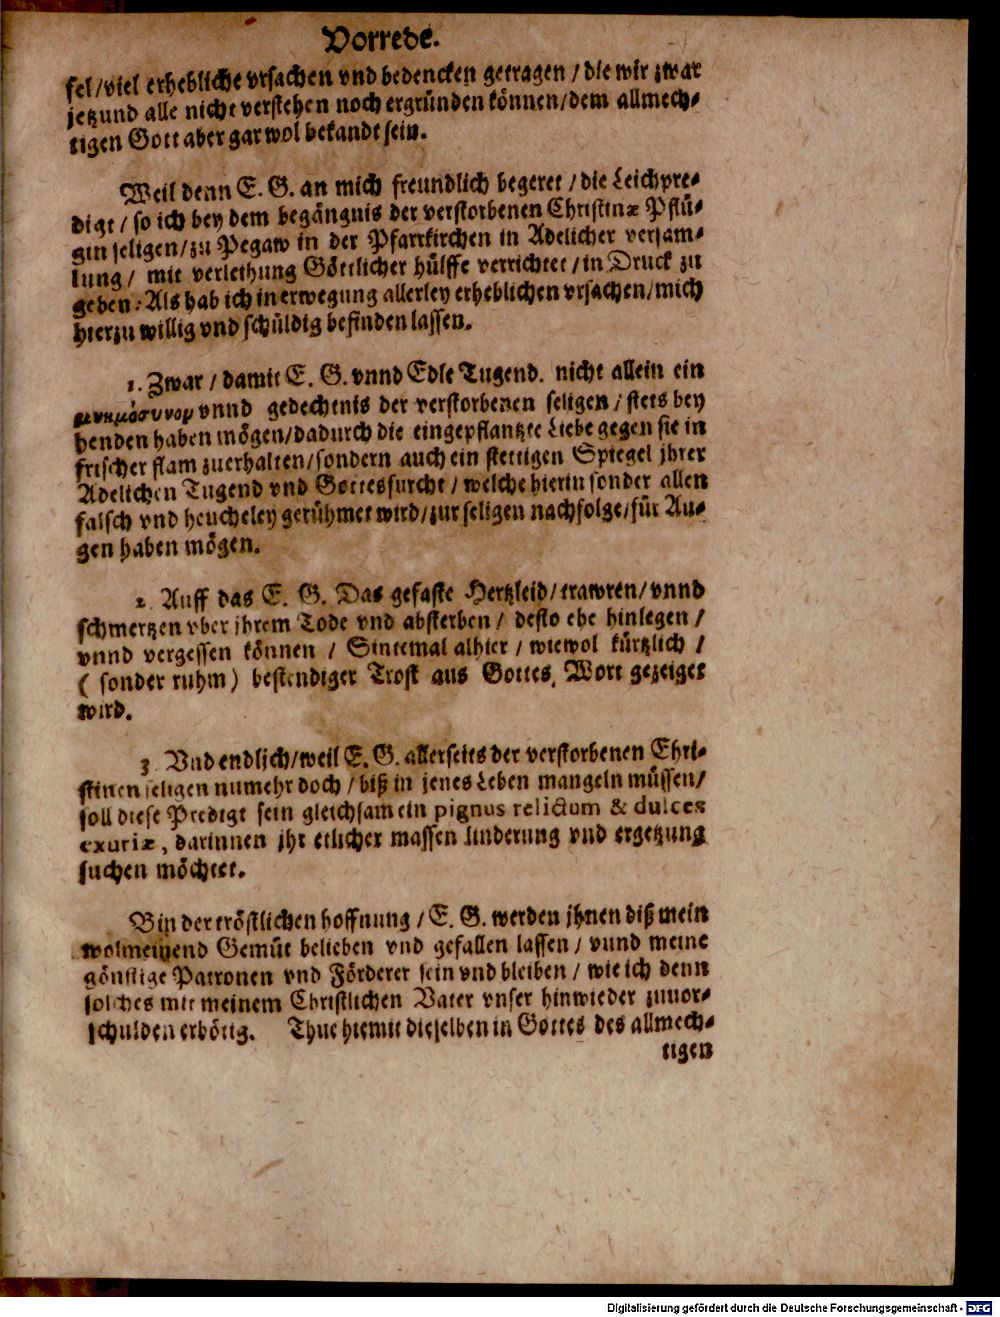 Vorrede.
fel/viel erhebliche vrsachen vnd bedencken getragen / die wir zwar
jetzund alle nicht verstehen noch ergründen können/dem allmech-
tigen Gott aber gar wol bekandt sein.
Weil denn E. G. an mich freundlich begeret / die Leichpre-
digt / so ich bey dem begängnis der verstorbenen Christinæ Pflü-
gin seligen/zu Pegaw in der Pfarrkirchen in Adelicher versam-
lung / mit verleihung Göttlicher hülffe verrichtet / in Druck zu
geben: Als hab ich in erwegung allerley erheblichen vrsachen/mich
hierzu willig vnd schüldig befinden lassen.
1. Zwar / damit E. G. vnnd Edle Tugend. nicht allein ein
μνημόσυνον vnnd gedechtnis der verstorbenen seligen / stets bey
henden haben mögen/dadurch die eingepflantzte Liebe gegen sie in
frischer flam zuerhalten/sondern auch ein stettigen Spiegel jhrer
Adelichen Tugend vnd Gottesfurcht / welche hierin sonder allen
falsch vnd heucheley gerühmet wird/zur seligen nachfolge/für Au-
gen haben mögen.
2. Auff das E. G. Das gefaste Hertzleid/trawren/vnnd
schmertzen vber jhrem Tode vnd absterben / desto ehe hinlegen /
vnnd vergessen können / Sintemal alhier / wiewol kürtzlich /
( sonder ruhm ) bestendiger Trost aus Gottes Wort gezeiget
wird.
3 Vnd endlich/weil E. G. allerseits der verstorbenen Chri-
stinen seligen numehr doch / biß in jenes Leben mangeln müssen/
soll diese Predigt sein gleichsam ein pignus relictum & dulces
exuviæ, darinnen jhr etlicher massen linderung vnd ergetzung
suchen möchtet.
Bin der tröstlichen hoffnung / E. G. werden jhnen diß mein
wolmeinend Gemüt belieben vnd gefallen lassen / vnnd meine
günstige Patronen vnd Förderer sein vnd bleiben / wie ich denn
solches mit meinem Christlichen Vater vnser hinwieder zuuor-
schulden erbötig. Thue hiemit dieselben in Gottes des allmech-
tigen
Digitalisierung gefördert durch die Deutsche Forschungsgemeinschaft - DFG